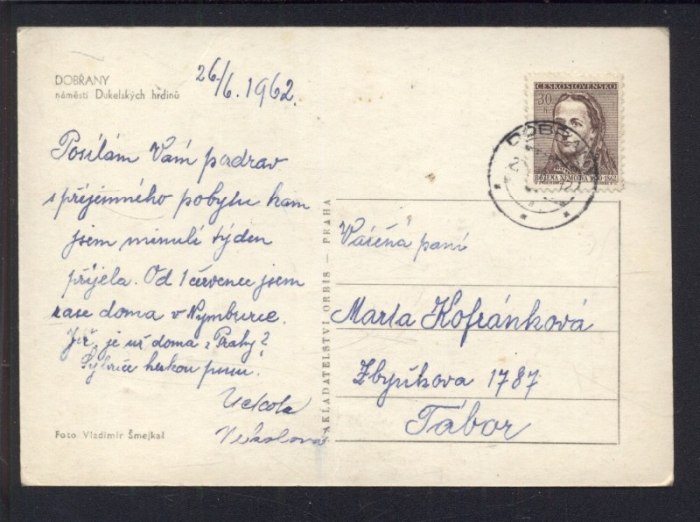 DOBŘANY
náměstí Dukelských hrdinů
26/6. 1962.
Posílám Vám pozdrav
s příjemného pobytu kam
jsem minulí týden
přijela. Od 1 července jsem
zase doma v Nymburce.
Jiř. je už doma z Prahy?
hezkou
Foto Vladimír Šmejkal
NAKLADATELSTVÍ ORBIS — PRAHA
ČESKOSLOVENSKO
30
h
BOŽENA NĚMCOVÁ
DOBŘ
Vážená paní
Marta Kofránková
Zbyňkova 1787
Tábor